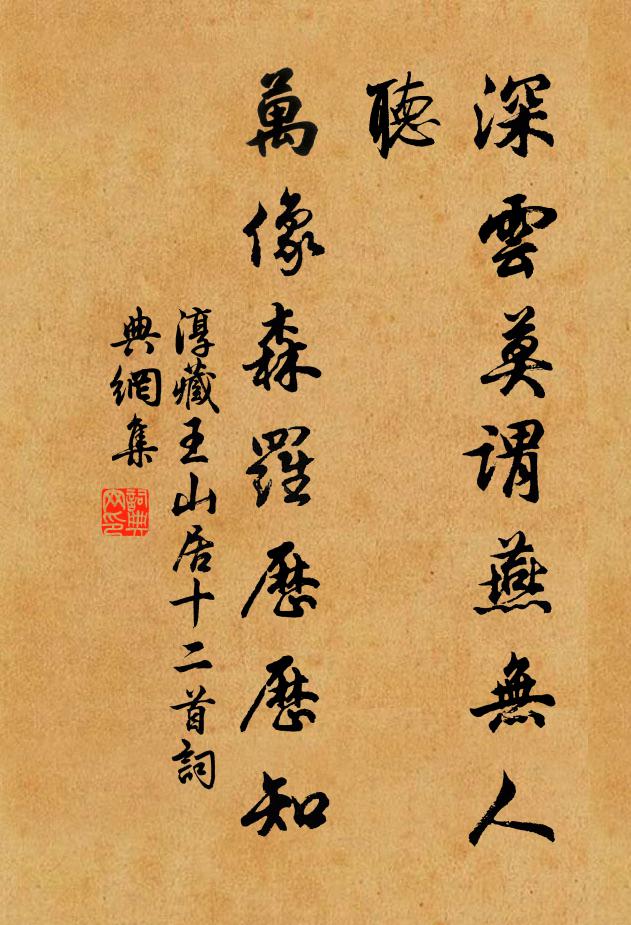 深雲莫謂燕無人
聽
萬像森羅歷歷知
淳藏王山居十二首詞
典網集
詞典
网印